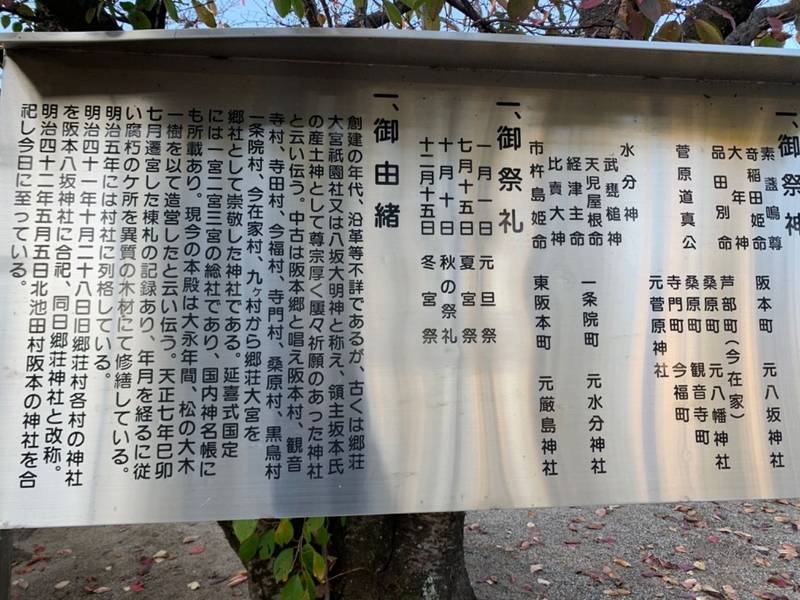 一、御祭神
素盞鳴尊 阪本町 元八坂神社
奇稲田姫命
大年神 芦部町(今在家)
品田別命 桑原町 元八幡神社
桑原町 観音寺町
菅原道真公 寺門町 今福町
元菅原神社
水分神
武甕槌神
天児屋根命 一条院町 元水分神社
経津主命
比賣大神
市杵島姫命 東阪本町 元厳島神社
一、御祭礼
一月一日 元旦祭
七月十五日 夏宮祭
十月十日 秋の祭礼
十二月十五日 冬宮祭
一、御由緒
創建の年代、沿革等不詳であるが、古くは郷荘
大宮祇園社又は八坂大明神と称え、領主坂本氏
の産土神として尊宗厚く屢々祈願のあった神社
と云い伝う。中古は阪本郷と唱え阪本村、観音
寺村、寺田村、今福村、寺門村、桑原村、黒鳥村
一条院村、今在家村、九ヶ村から郷荘大宮を
郷社として崇敬した神社である。延喜式国定
には一宮二宮三宮の総社であり、国内神名帳に
も所載あり。現今の本殿は大永年間、松の大木
一樹を以て造営したと云い伝う。天正七年巳卯
七月遷宮した棟札の記録あり、年月を経るに従
い腐朽のケ所を異質の木材にて修繕している。
明治五年には村社に列格している。
明治四十一年十月二十八日旧郷荘村各村の神社
を阪本八坂神社に合祀、同日郷荘神社と改称。
明治四十二年五月五日北池田村阪本の神社を合
祀し今日に至っている。